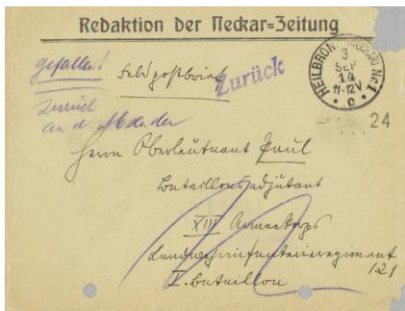 Redaktion der Neckar=Zeitung
gefallen!
Feldpostbrief
Zurück
HEILBRONN (NECKAR) No 1
3
SEP
14
11-12V
* c *
zurück
an d. Absender
24
Herrn Oberleutnant Paul
Bataillonsadjutant
XIII Armeekorps
Landwehrinfanterieregiment
121
I. Bataillon